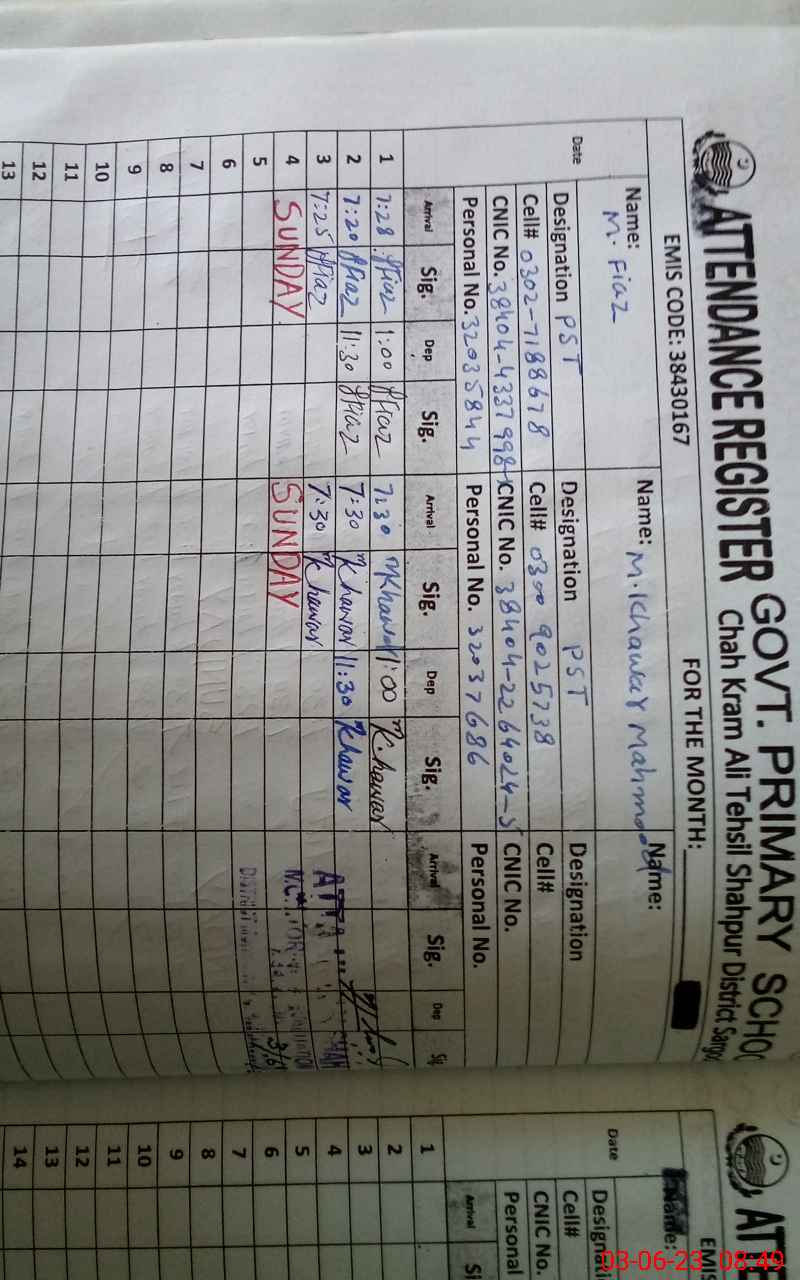 GOVT. PRIMARY SCHOO
ATTENDANCE REGISTER Chah Kram Ali Tehsil Shahpur District Sargo
EMIS CODE: 38430167 FOR THE MONTH:
Name: M. Fiaz Name: M. Khawar Mahmood Name:
Date Designation PST Designation PST Designation
Cell# 0302-7188678 Cell# 0300 9025738 Cell#
CNIC No. 38404-4337998- CNIC No. 38404-2264024-5 CNIC No.
Personal No. 32035844 Personal No. 32037686 Personal No.
Arrival Sig. Dep Sig. Arrival Sig. Dep Sig. Arrival Sig. Dep Si
1 7:28 Fiaz 1:00 Fiaz 7:30 Khawar 1:00 Khawar
2 7:20 Fiaz 11:30 Fiaz 7:30 Khawar 11:30 Khawar
3 7:25 Fiaz 7:30 Khawar
4 SUNDAY SUNDAY
5
6
7
8
9
10
11
12
13
ATT
EMIS
Name:
Date Designati
Cell#
CNIC No.
Personal
Arrival Si
1
2
3
4
5
6
7
8
9
10
11
12
13
14
03-06-23 08:49